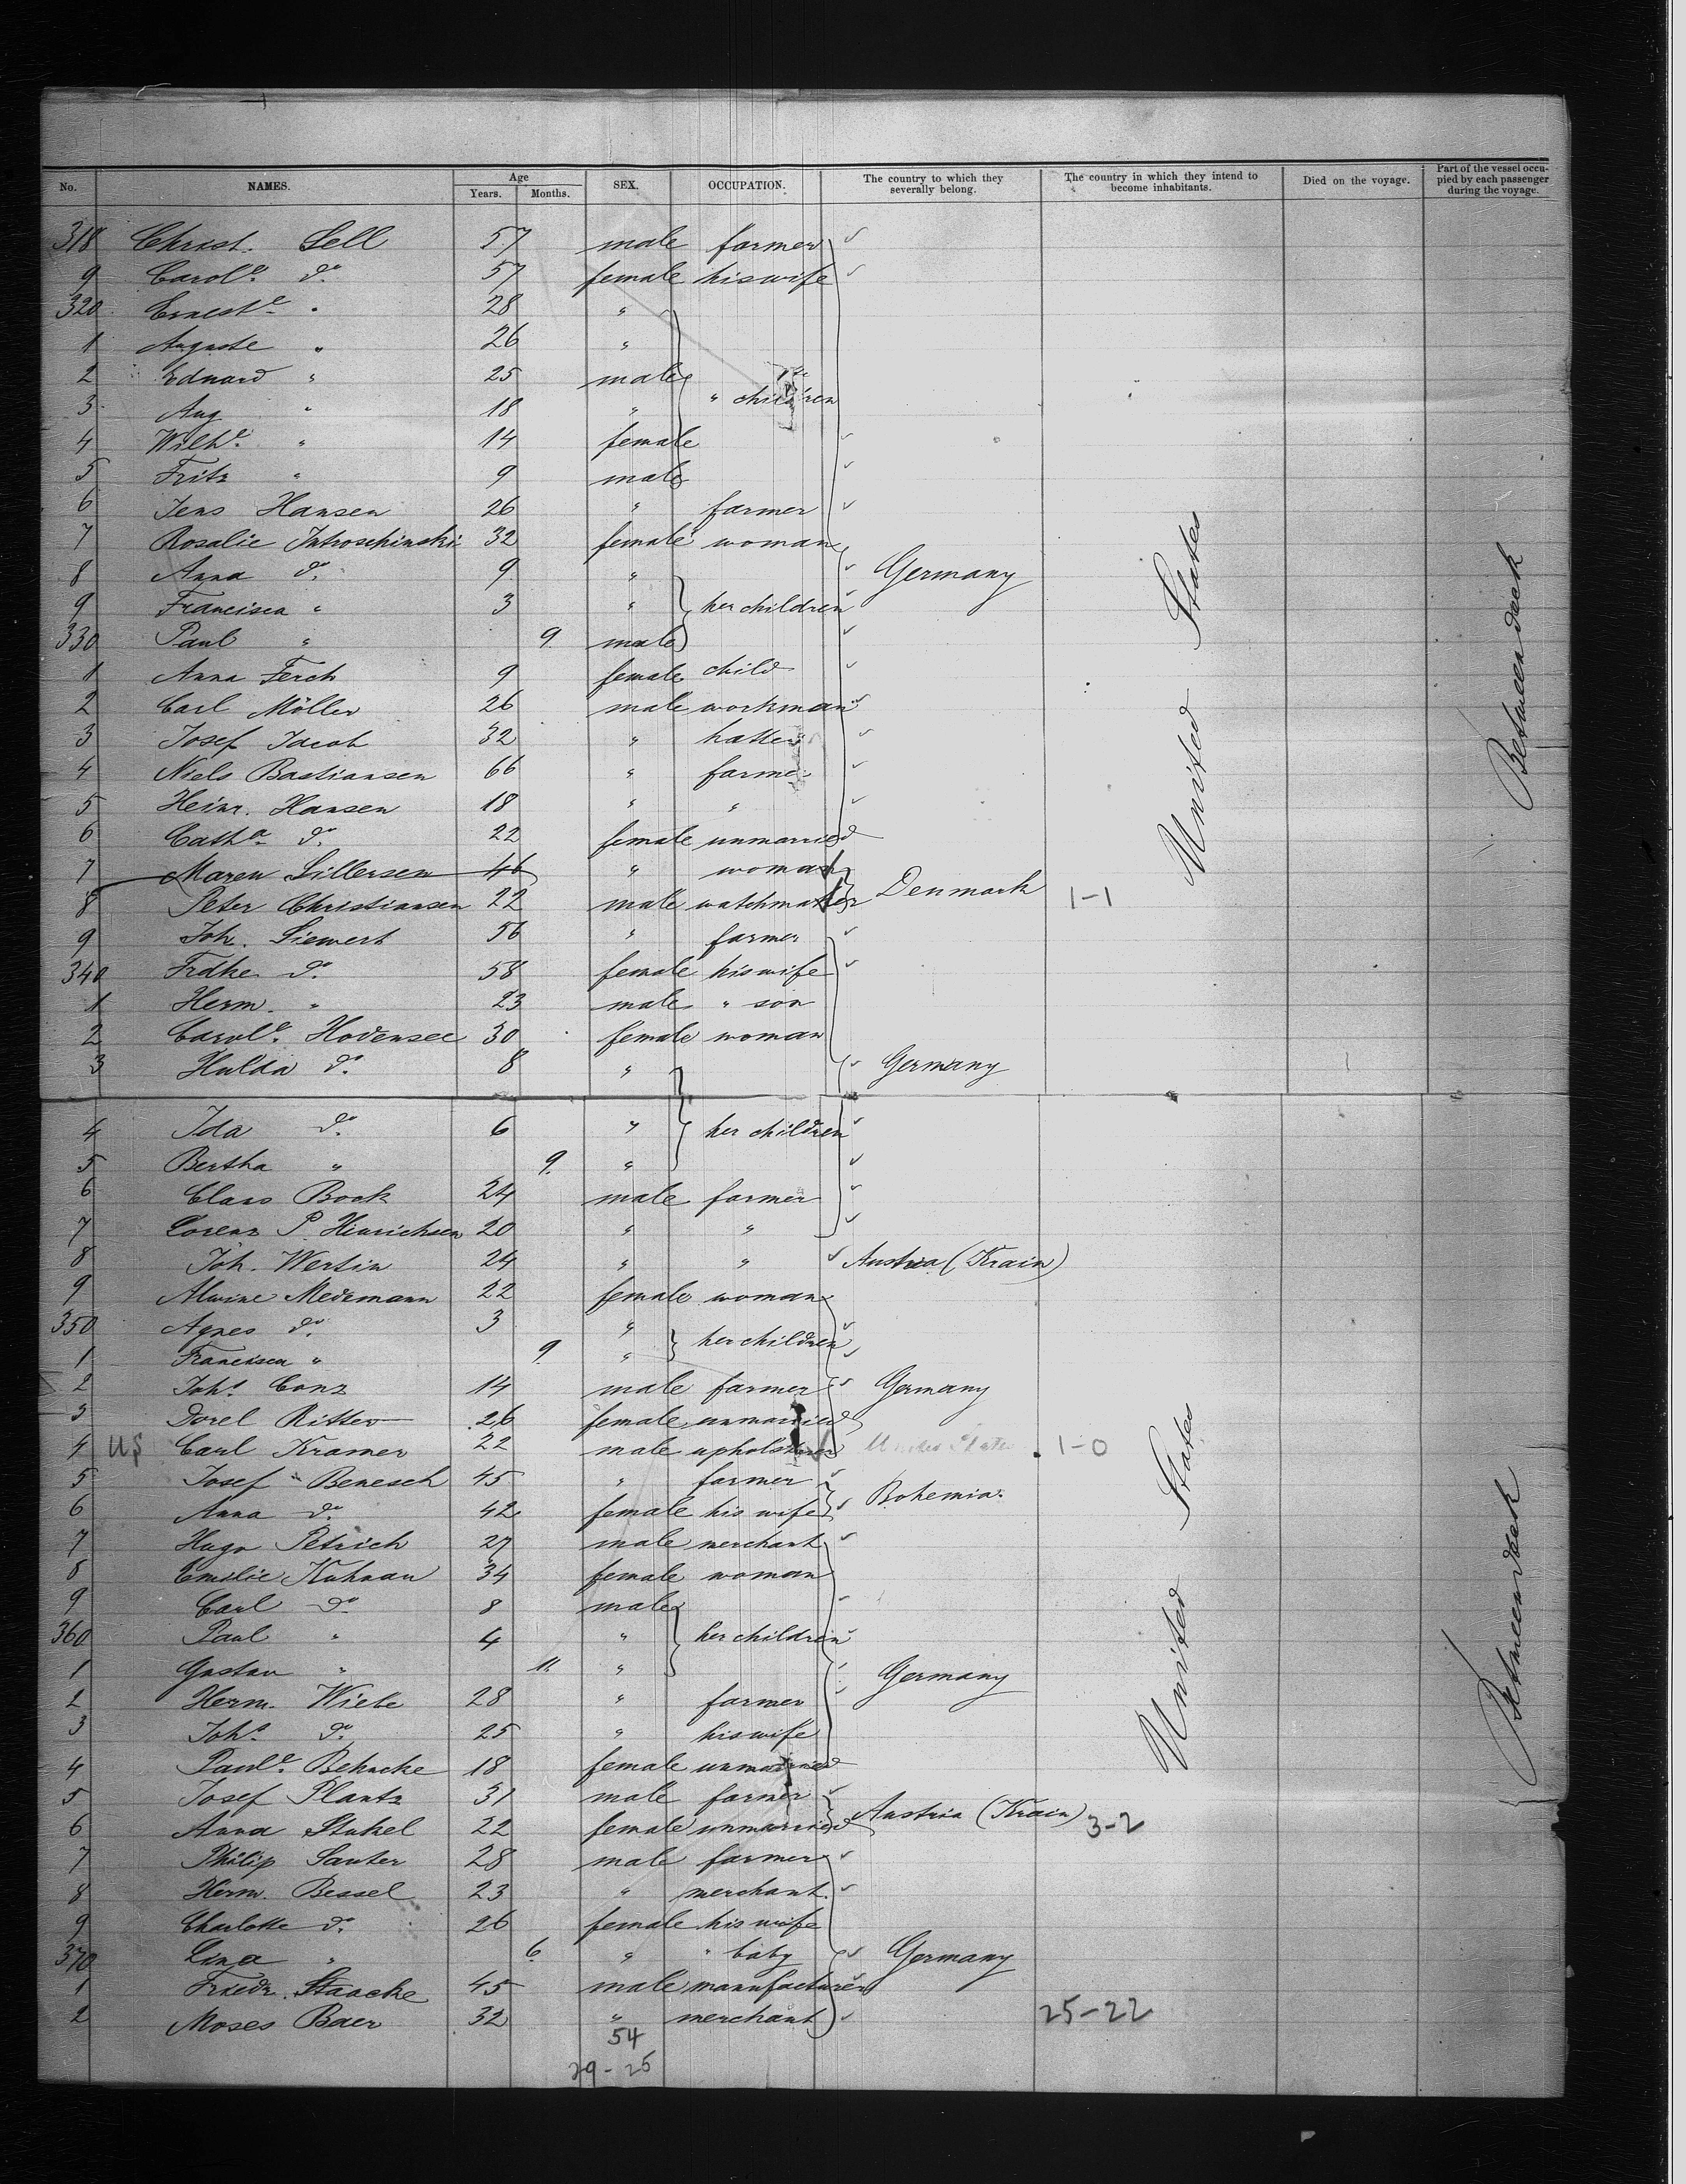 No. NAMES. Age Years. Months. SEX. OCCUPATION. The country to which they severally belong. The country in which they intend to become inhabitants. Died on the voyage. Part of the vessel occupied by each passenger during the voyage.
318 Christ. Sell 57 male farmer
9 Carol^e. d^o. 57 female his wife
320 Ernest^e " 28 "
1 Auguste " 26 "
2 Eduard " 25 male
3 Aug " 18 " " children
4 Wilh^e. " 14 female
5 Fritz " 9 male
6 Jens Hansen 26 " farmer
7 Rosalie Introschinski 32 female woman
8 Anna d^o. 9 " Germany
9 Francisca " 3 " her children
330 Paul " 9 male
1 Anna Ferch 9 female child
2 Carl Möller 26 male workman
3 Josef Jacob 32 " hatter
4 Niels Bastiansen 66 " farmer
5 Heinr. Hansen 18 " "
6 Cath^a. d^o. 22 female unmarried
7 Maren Sillersen 46 " woman
8 Peter Christiansen 22 male watchmaker Denmark 1-1
9 Joh. Siewert 56 " farmer
340 Frdke d^o. 58 female his wife
1 Herm. " 23 male " son
2 Carol^e. Hodensee 30 female woman
3 Hulda d^o. 8 " Germany
4 Ida d^o. 6 " her children
5 Bertha " 9 "
6 Claus Bock 24 male farmer
7 Lorenz P. Hinrichsen 20 " "
8 Joh. Wertin 24 " " Austria (Krain)
9 Alwine Medemann 22 female woman
350 Agnes d^o. 3 " her children
1 Francisca " 9 "
2 Joh^s. Conz 14 male farmer Germany
3 Dorel Ritter 26 female unmarried
4 US Carl Kramer 22 male upholsterer United States 1-0
5 Josef Benesch 45 " farmer
6 Anna d^o. 42 female his wife Bohemia.
7 Hugo Petrich 27 male merchant
8 Emilie Kuhnau 34 female woman
9 Carl d^o. 8 male
360 Paul " 4 " her children
1 Gustav " 11 " Germany
2 Herm. Wiebe 28 " farmer
3 Joh^a. d^o. 25 " his wife
4 Paul^e. Behncke 18 female unmarried
5 Josef Plantz 31 male farmer
6 Anna Stukel 22 female unmarried Austria (Krain) 3-2
7 Philip Sauter 28 male farmer
8 Herm. Bessel 23 " merchant
9 Charlotte d^o. 26 female his wife
370 Lina " 6 " " baby Germany
1 Friedr. Staacke 45 male manufacturer
2 Moses Baer 32 " merchant 25-22
54
29-25
United States
Between deck
United States
Between deck